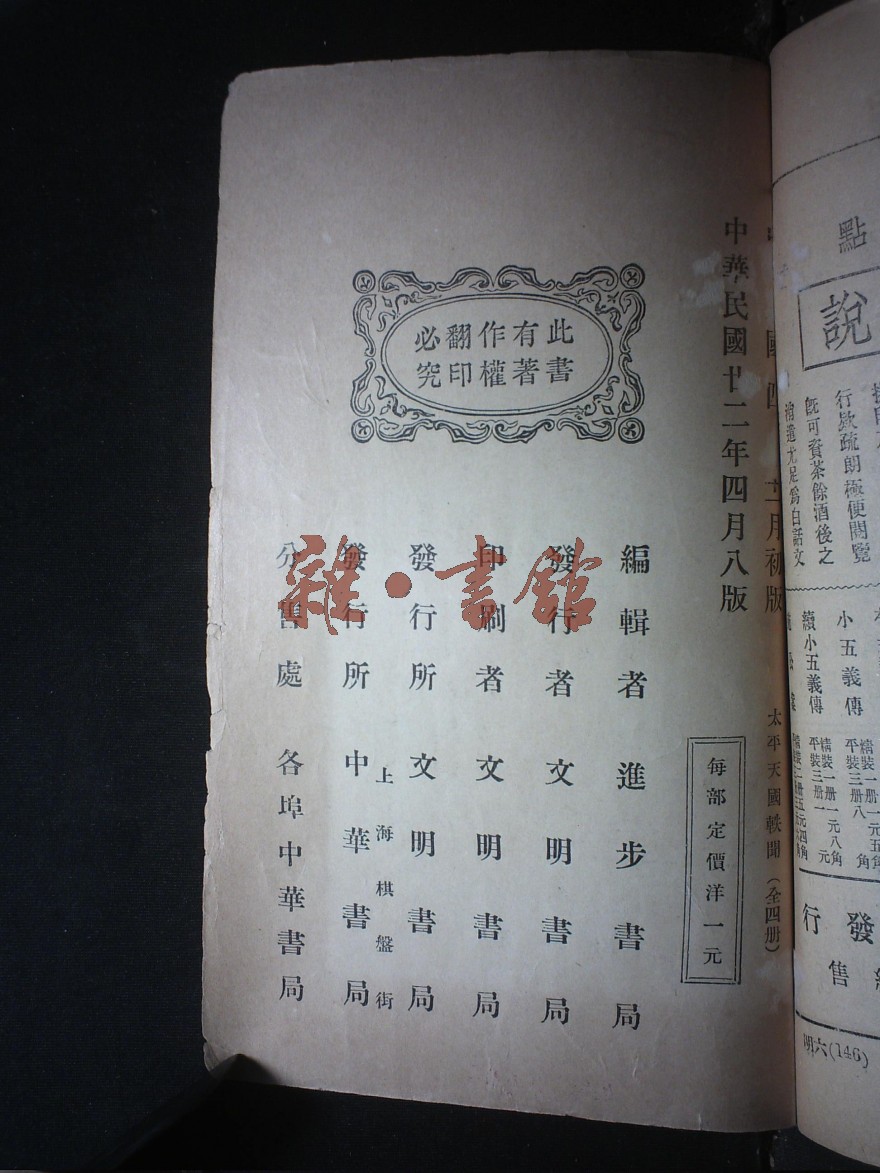 國四 十二月初版
太平天國軼聞（全四册）
中華民國廿二年四月八版
每部定價洋一元
此書
有著
作權
翻印
必究
編輯者 進步書局
發行者 文明書局
印刷者 文明書局
發行所 文明書局
上海棋盤街
發行所 中華書局
分售處 各埠中華書局
雜·書館
點
說
行欵疏朗極便閱覽
既可資茶餘酒後之
補遺尤足爲白話文
小五義傳
續小五義傳
精裝一册一元五角
平裝三册八角
精裝一册一元八角
平裝三册一元
發行
售
明六(146)